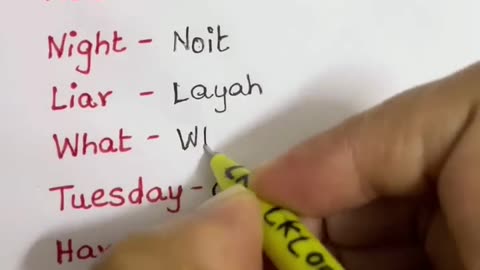 Night - Noit
Liar - Layah
What - W
Tuesday -